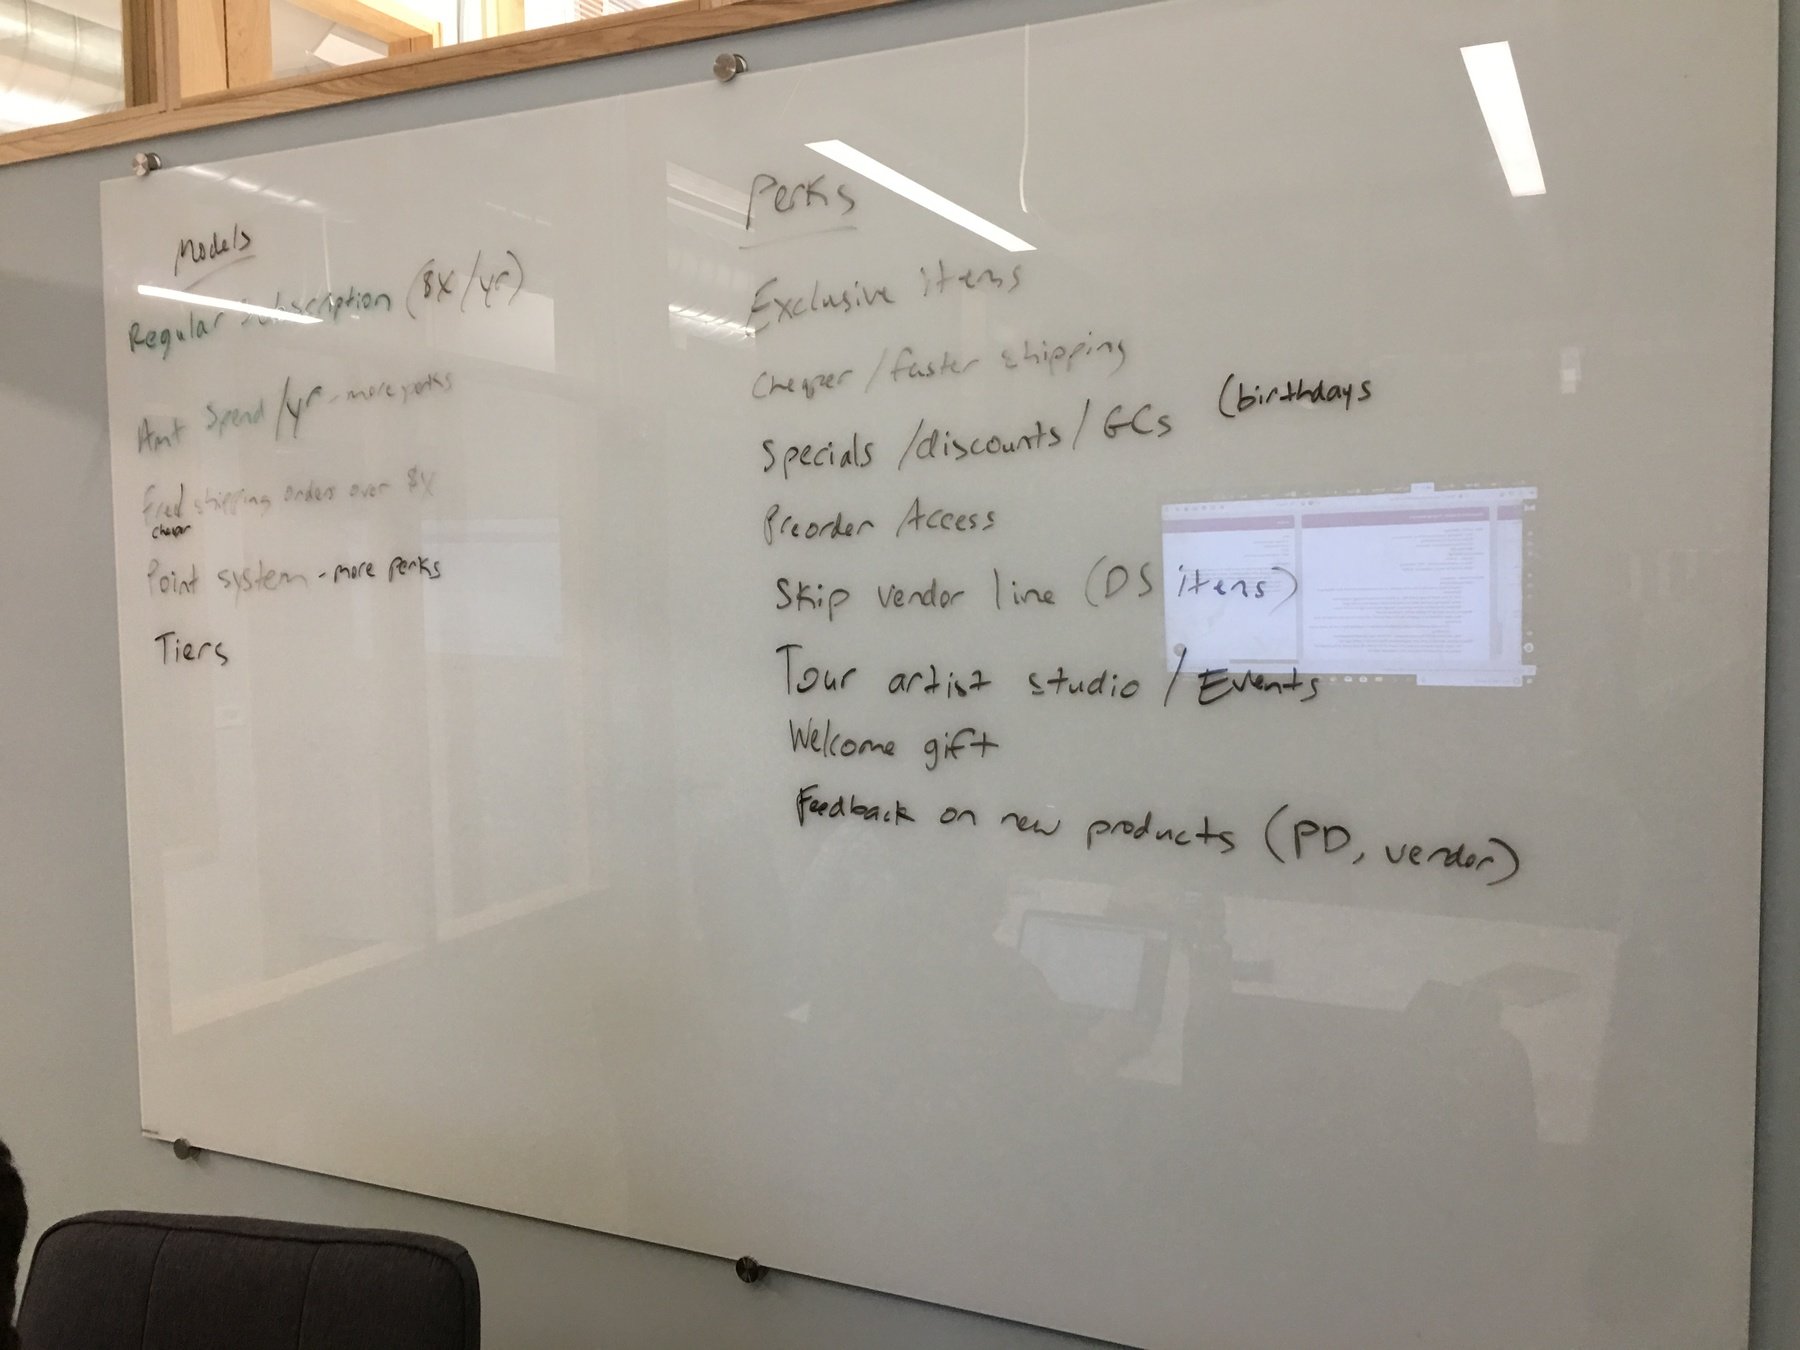 Models
Regular Subscription ($X/yr)
Amt Spend/yr - more perks
Free shipping orders over $X
cheaper
Point system - more perks
Tiers
Perks
Exclusive items
Cheaper/faster shipping
Specials/discounts/GCs (birthdays
Preorder Access
Skip vendor line (DS items)
Tour artist studio/Events
Welcome gift
Feedback on new products (PD, vendor)